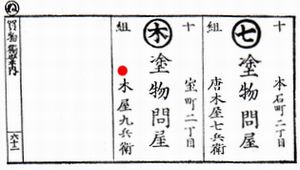 十組
七
塗物問屋
本石町二丁目
唐木屋七兵衛
十組
木
塗物問屋
室町二丁目
木屋九兵衛
ぬ
買物独案内
六十二